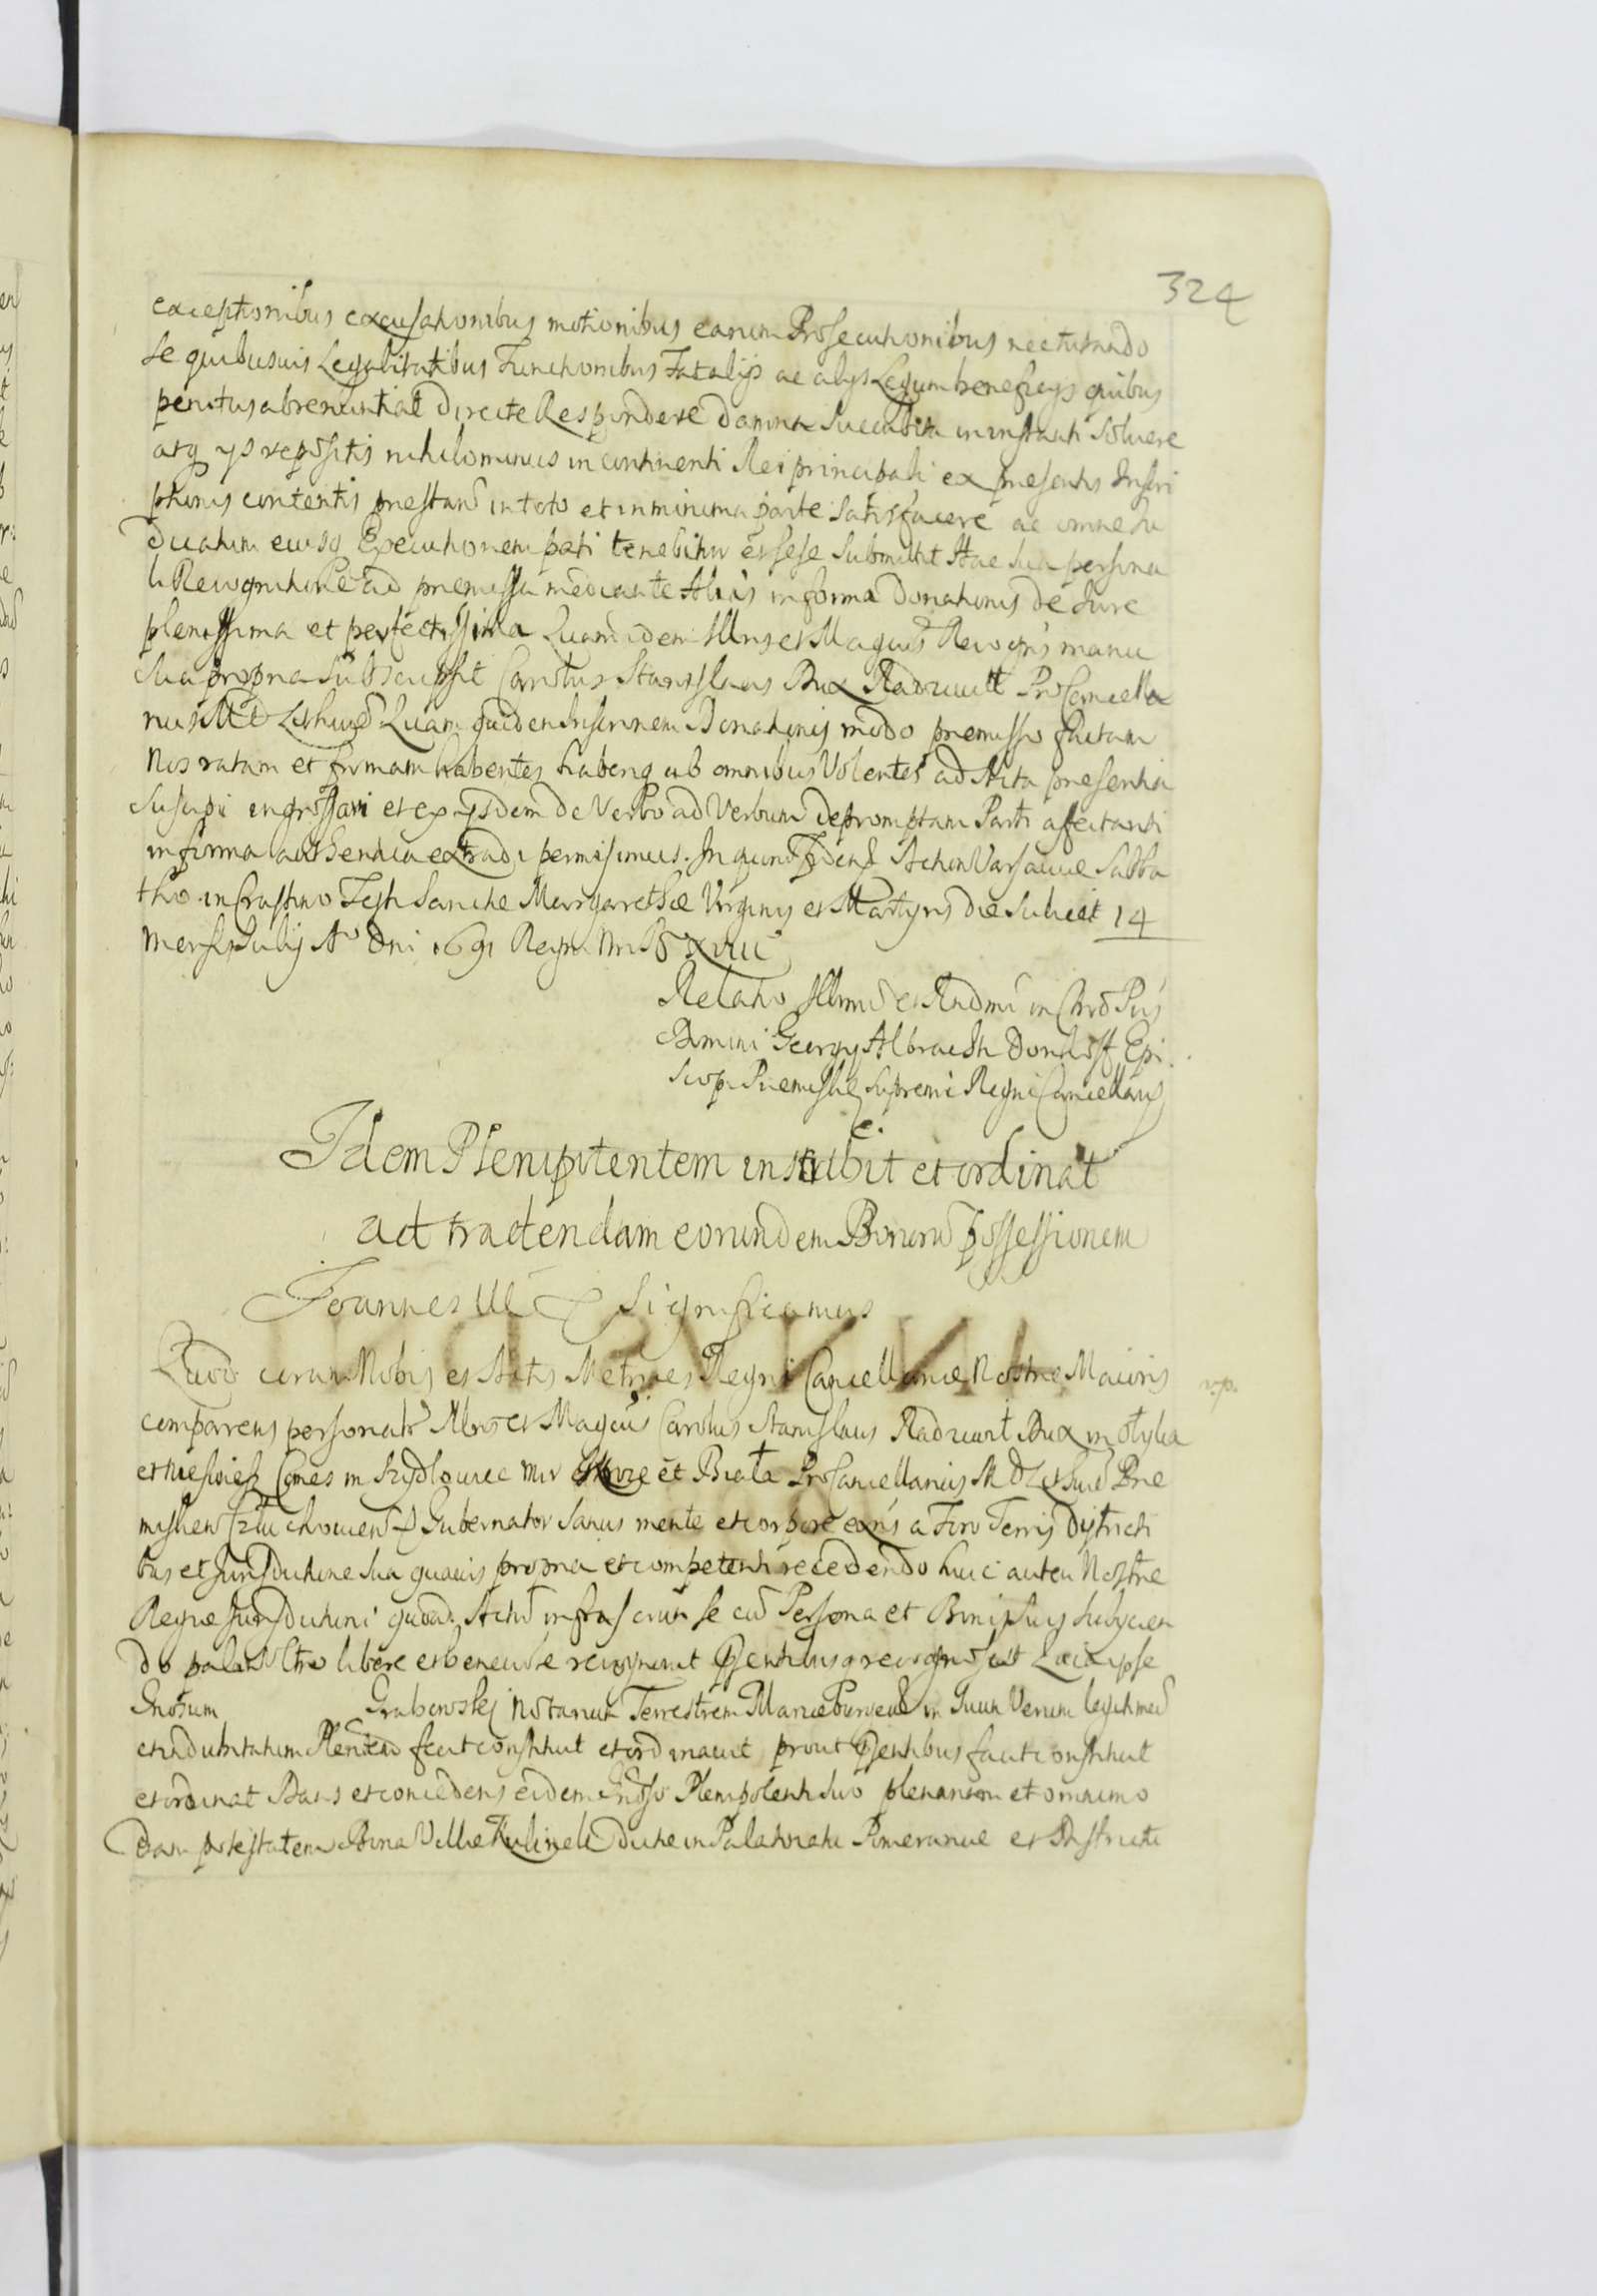 324
exceptionibus excusationibus motionibus earum Prosecutionibus nec tutando
se quibusuis Legalitatibus Functionibus Fatalijs ac alijs Legum beneficijs quibus
penitus abrenuntiat directe Respondere damna succubita in instanti soluere
atq ijs repositis nihilominus in continenti Rei principali ex presentis Inscri
ptionis contentis prestand in toto et in minima parte satisfacere ac omnem
eiusq Executionem pati tenebitur et sese submittit Hac sua persona
li Recognitione ad premissa mediante Alias in forma donationis de Jure
plenissima et perfectissima Quam idem Illris et Magcus Recogns manu
sua propria subscripsit Carolus Stanislaus Dux Radziwill ProCancella
rius M D Lithuae Quam quidem Inscrinem Donationis modo premisso factam
Nos ratam et firmam habentes haberiq ab omnibus Volentes ad Acta presentia
suscipi ingrossari et ex ijsdem de Verbo ad Verbum depromptam Parti affectanti
in forma authentica extradi permisimus. In quor Fidem Actum Varsaviae Sabba
tho in Crastino Festi Sanctae Margarethae Virginis et Martyris die scilicet 14
Mensis Julij Ao Dni 1691 Regni Nri XVIII
Relatio Illmi et Rndmi in Chro Pris
Domini Georgij Albracht Donhoff Epi
scopi Premislie Supremi Regni Cancellarij
Idem Plenipotentem instituit et ordinat
ad tradendam eorundem Bonorum possessionem
Joannes III & Significamus
Quod coram Nobis et Actis Metrices Regni Cancellariae Nostrae Maioris
comparens personalr Illris et Magcus Carolus Stanislaus Radziwil Dux in Olyka
et Nieswiesz Comes in Szydlowiec Mir et Biała ProCancellarius M D Lithuae Pre
mislien Człuchowien & Gubernator Sanus mente et corpore exns a Foro Terris Districti
bus et Jurisdictione sua quavis propria et competenti recedendo huic autem Nostrae
Regiae Jurisdictioni quoad Actum infrascriptum se cum Persona et Bonis suis subijcien
do palam libere et benevole recognovit Psentibusq recognoscit Quia ipse
Gnosum Grabowski Notarium Terrestrem Marieburgen in Suum Verum legitimum
et indubitatum Plenten fecit constituit et ordinavit prout Psentibus facit constituit
et ordinat Dans et concedens eidem Gnoso Plenipotenti suo plenariam et omnimo
dam potestatem Bona Villae dictae in Palatinatu Pomeraniae et Districtu